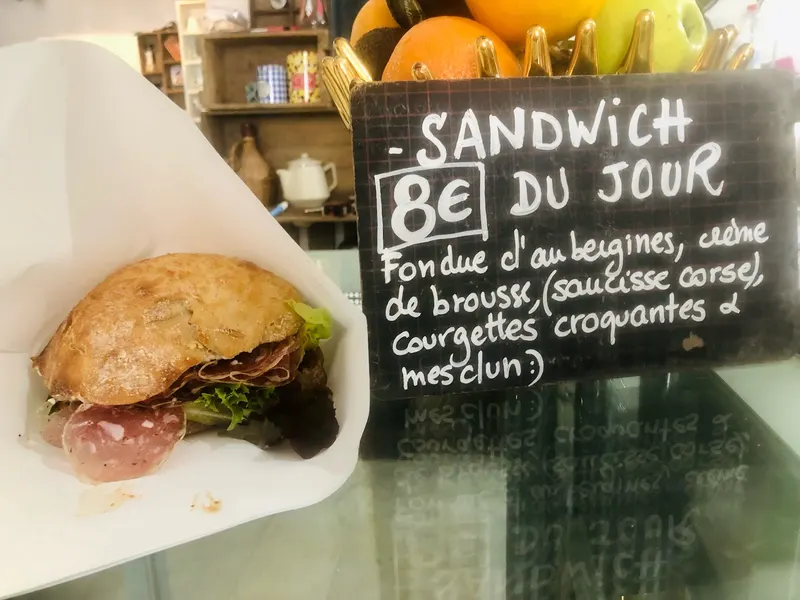 - SANDWICH
8€ DU JOUR
Fondue d'aubergines, crème
de brousse, (saucisse corse),
courgettes croquantes &
mesclun :)